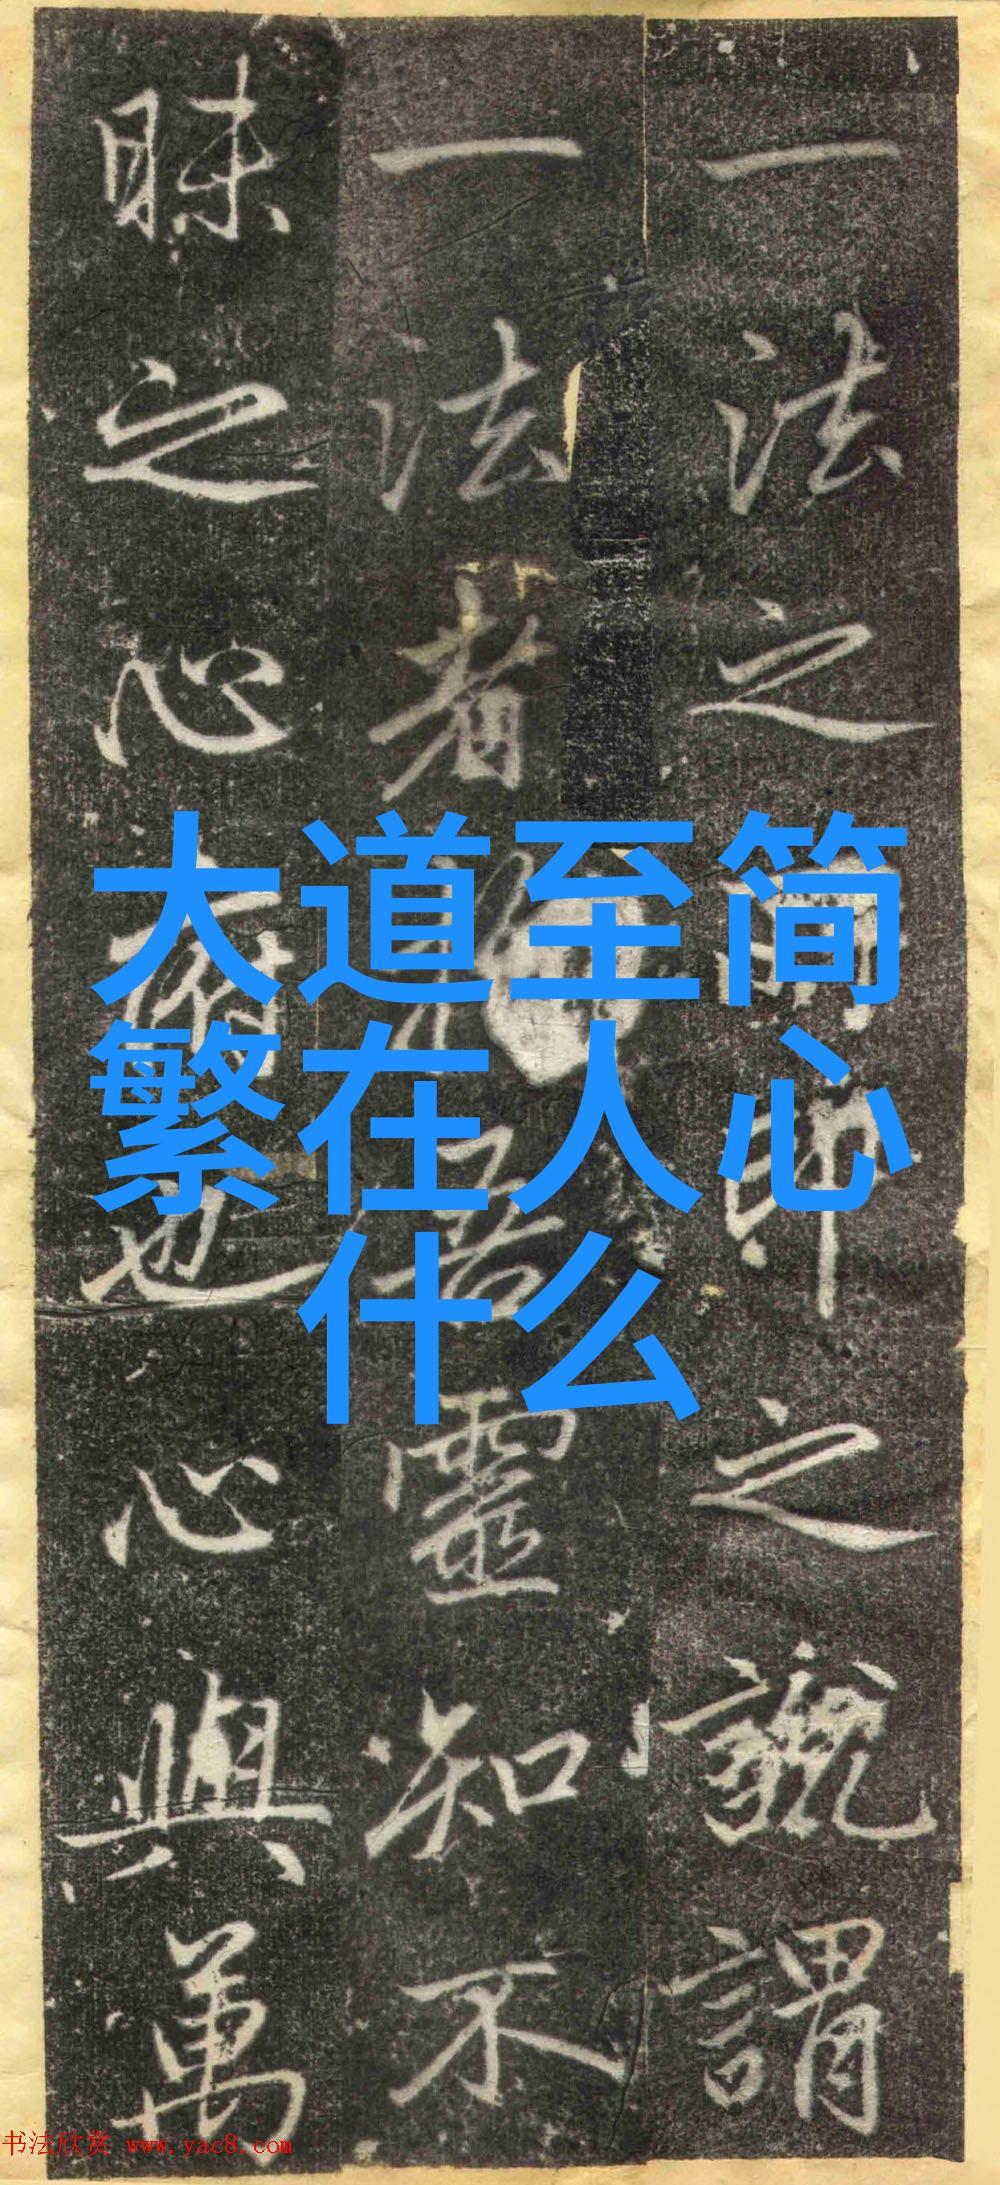 一法之印之號謂
一法者靈知不
昧之心也心與萬
大道至简
繁在人心
什么
书法欣赏 www.yac8.com